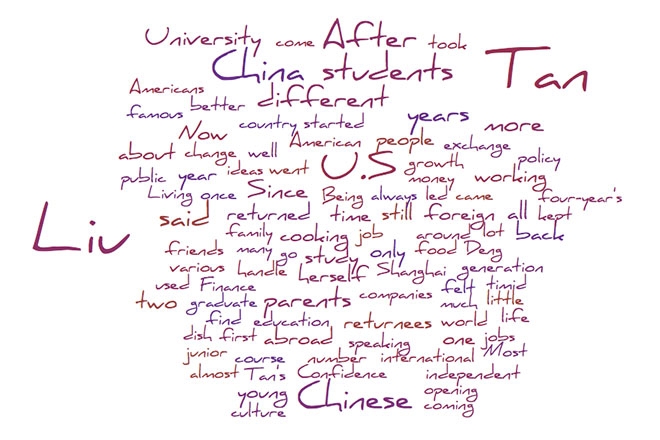 University come After took
China students Tan
Americans different
famous better
country started years more
Now American people exchange
about change well U.S growth policy
public year ideas went money working
Living once Since Being always led came four-year's
Liv said returned time still foreign all kept
family cooking job around lot back
friends many go study only food Deng
various handle herself Shanghai generation
used Finance felt timid
two graduate parents companies much little
find education returnees world life
dish first abroad speaking one jobs
junior course number international Most
almost Tan's Confidence independent
young Chinese opening
culture coming